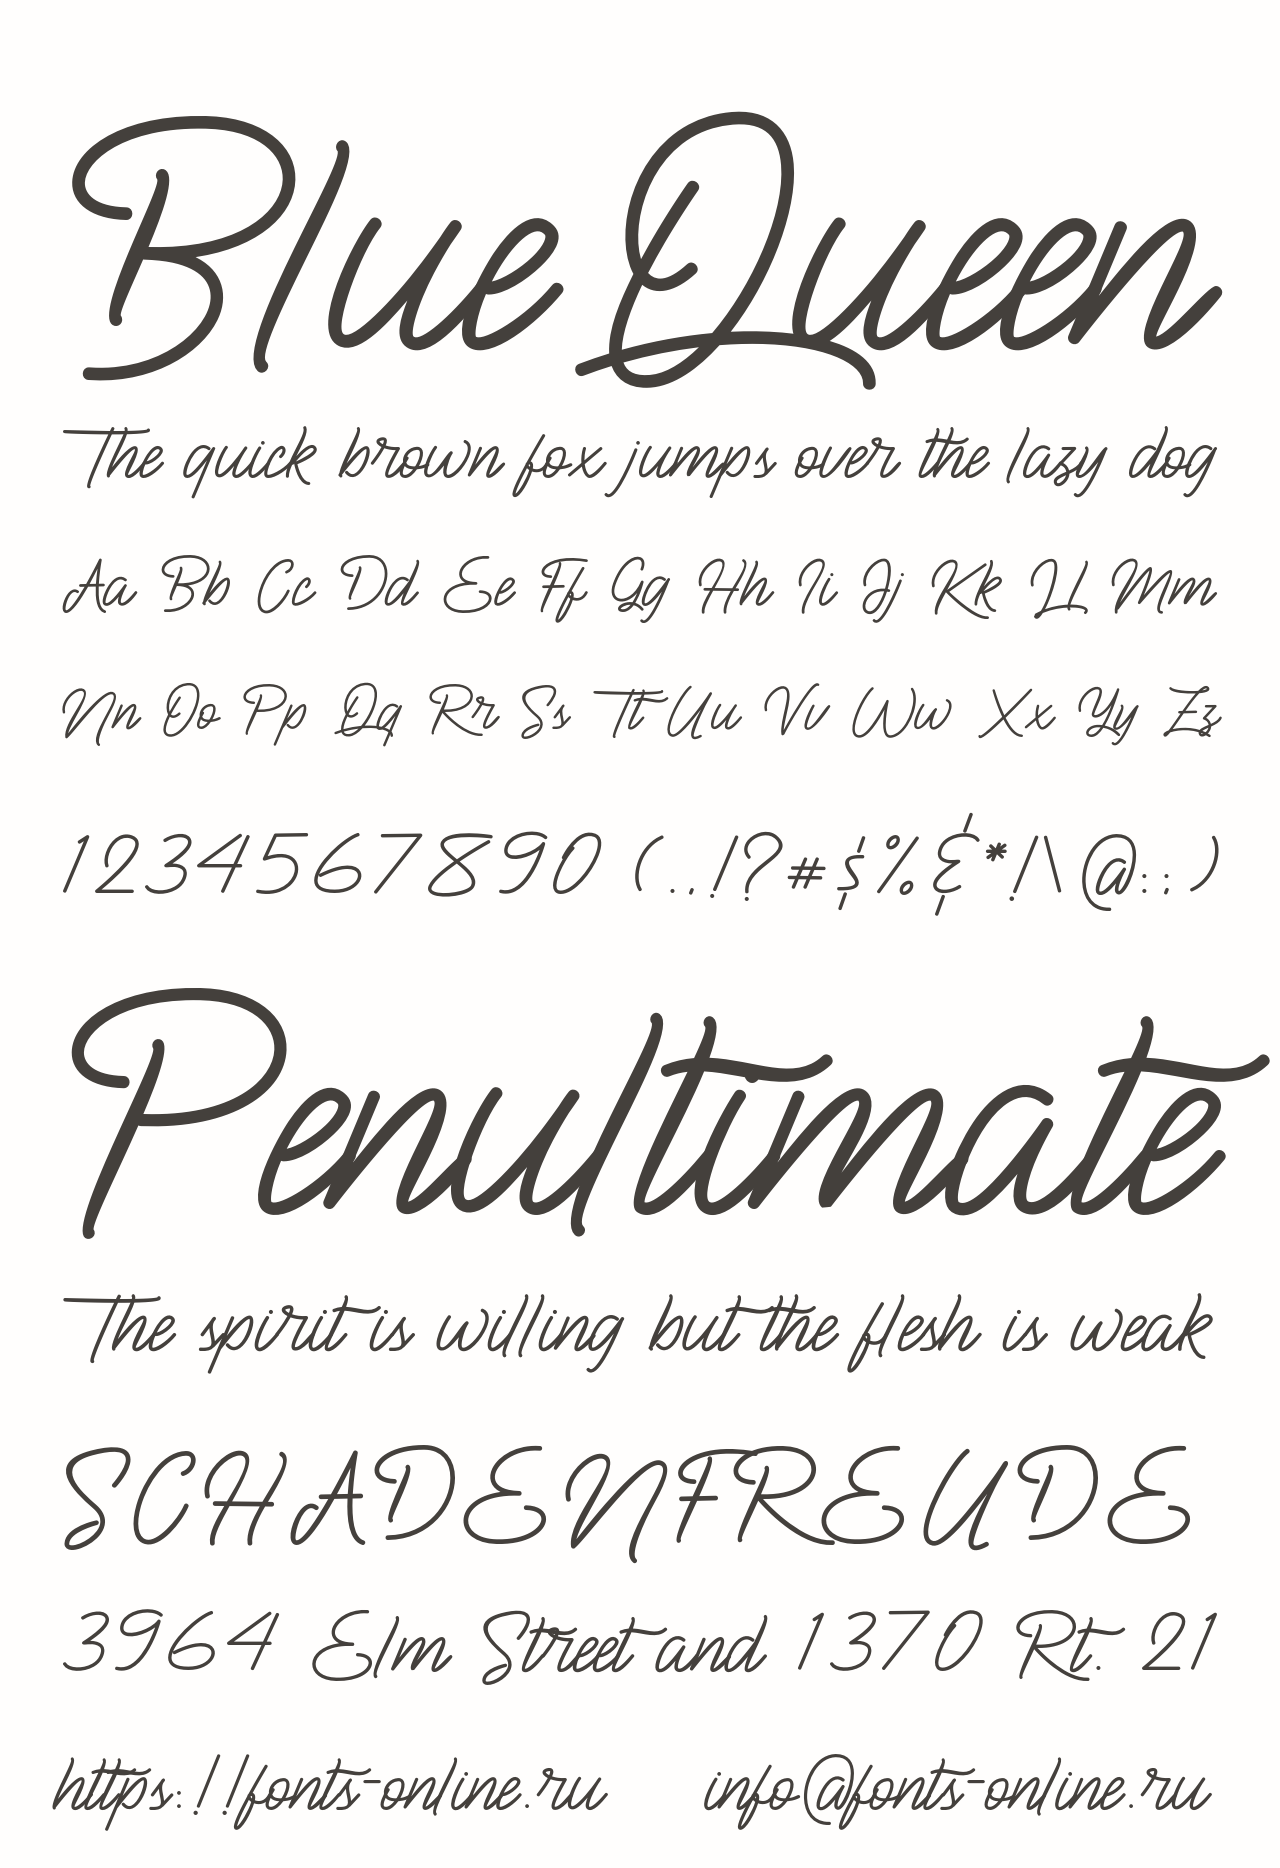 Blue Queen
The quick brown fox jumps over the lazy dog
Aa Bb Cc Dd Ee Ff Gg Hh Ii Jj Kk Ll Mm
Nn Oo Pp Qq Rr Ss Tt Uu Vv Ww Xx Yy Zz
1234567890 (.,!?#$%&*!\@:;)
Penultimate
The spirit is willing but the flesh is weak
SCHADENFREUDE
3964 Elm Street and 1370 Rt. 21
https:!!fonts-online.ru info@fonts-online.ru